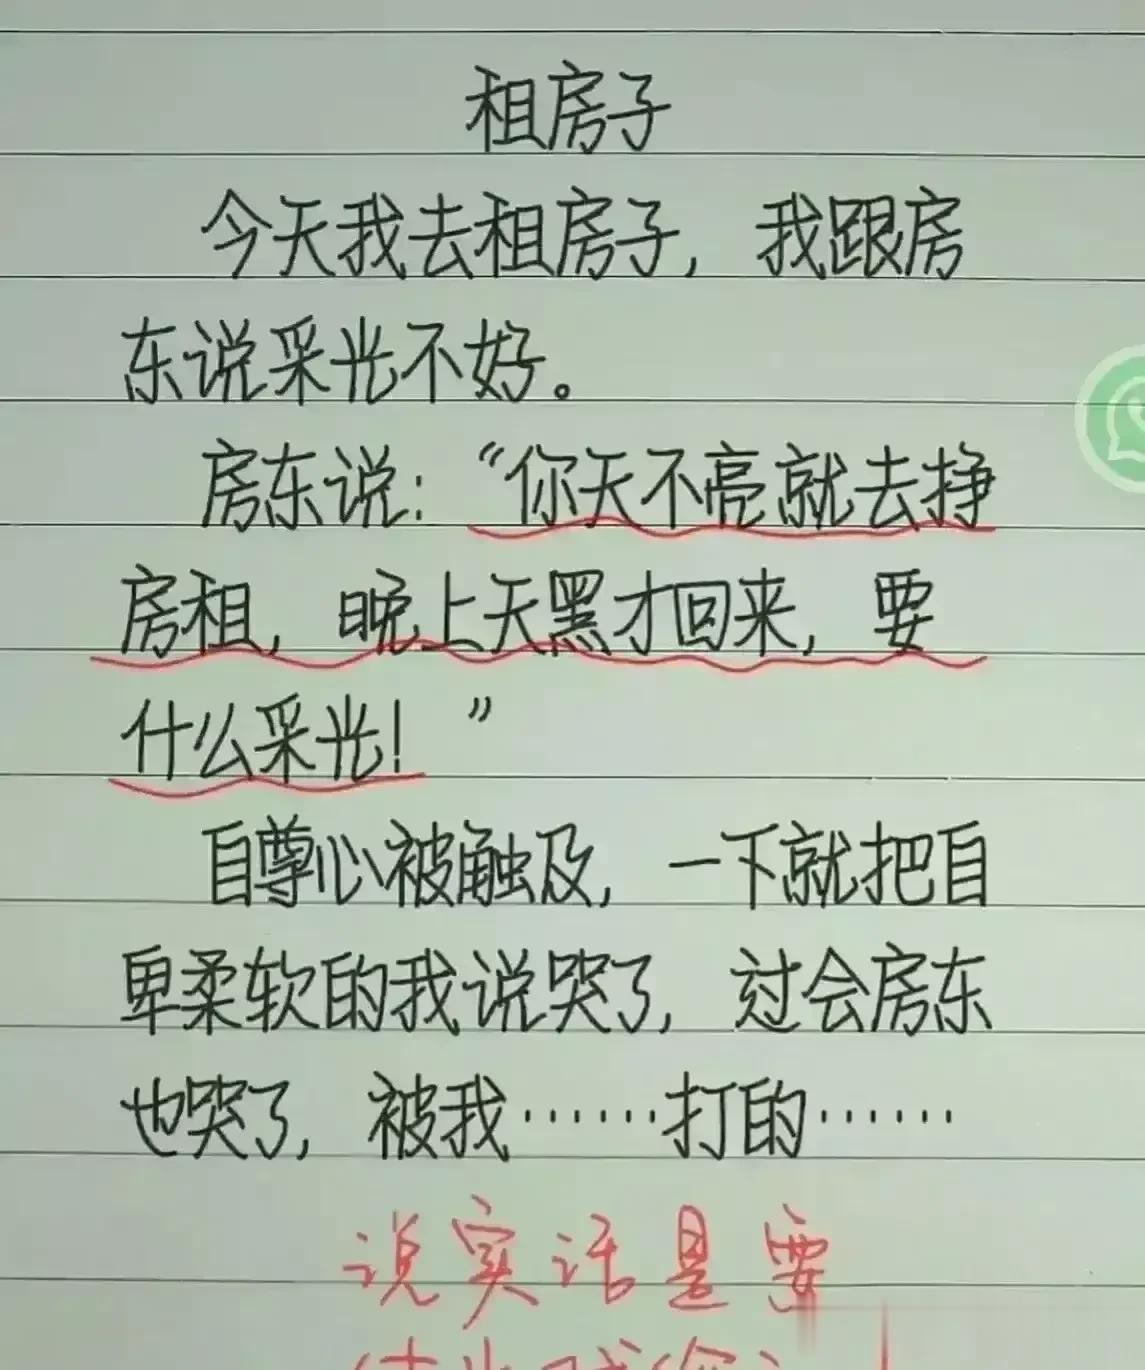 租房子
今天我去租房子，我跟房
东说采光不好。
房东说：“你天不亮就去挣
房租，晚上天黑才回来，要
什么采光！”
自尊心被触及，一下就把自
卑柔软的我说哭了，过会房东
也哭了，被我……打的……
说实话是要